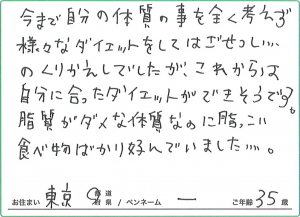 今まで自分の体質の事を全く考えず
様々なダイエットをしてはざせつし、、、
のくりかえしでしたが、これからは
自分に合ったダイエットができそうです。
脂質がダメな体質なのに脂っこい
食べ物ばかり好んでいました、、、。
お住まい 東京 都道府県 / ペンネーム ー ご年齢 35 歳